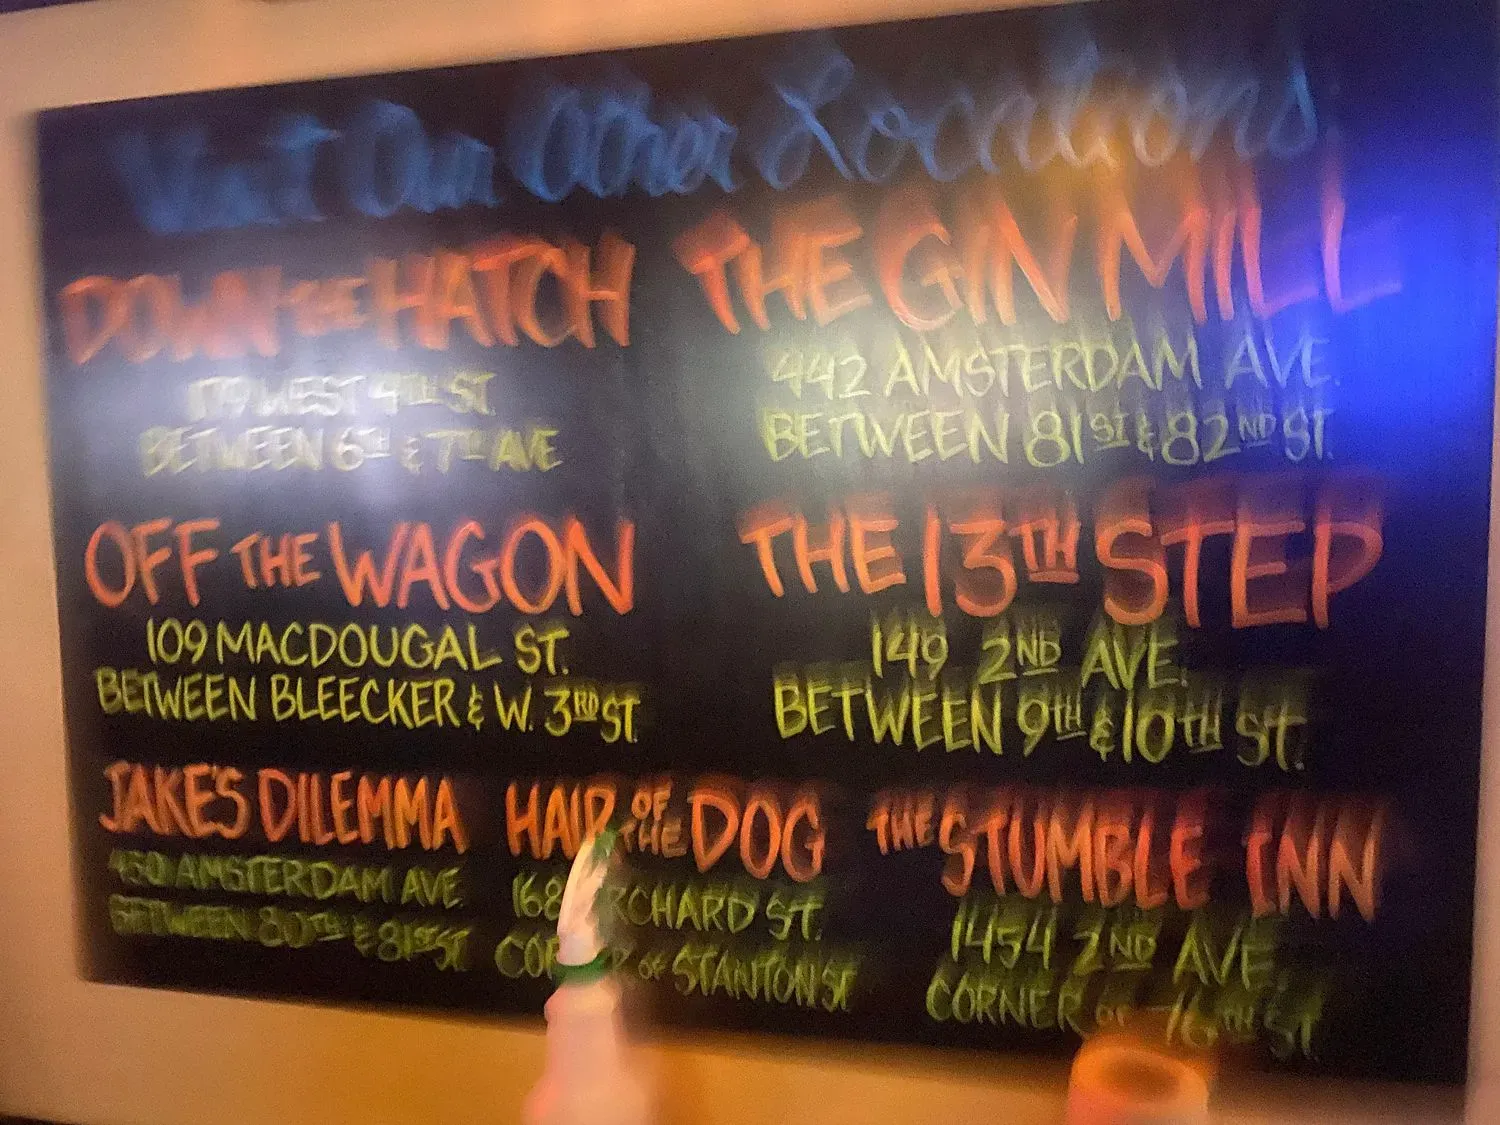 Visit Our Other Locations
DOWN THE HATCH
179 WEST 4TH ST
BETWEEN 6TH & 7TH AVE
THE GIN MILL
442 AMSTERDAM AVE.
BETWEEN 81ST & 82ND ST.
OFF THE WAGON
109 MACDOUGAL ST.
BETWEEN BLEECKER & W. 3RD ST.
THE 13TH STEP
149 2ND AVE.
BETWEEN 9TH & 10TH ST.
JAKE'S DILEMMA
430 AMSTERDAM AVE
BETWEEN 80TH & 81ST ST
HAIR OF THE DOG
168 ORCHARD ST.
CORNER OF STANTON ST
THE STUMBLE INN
1454 2ND AVE.
CORNER OF 76TH ST.